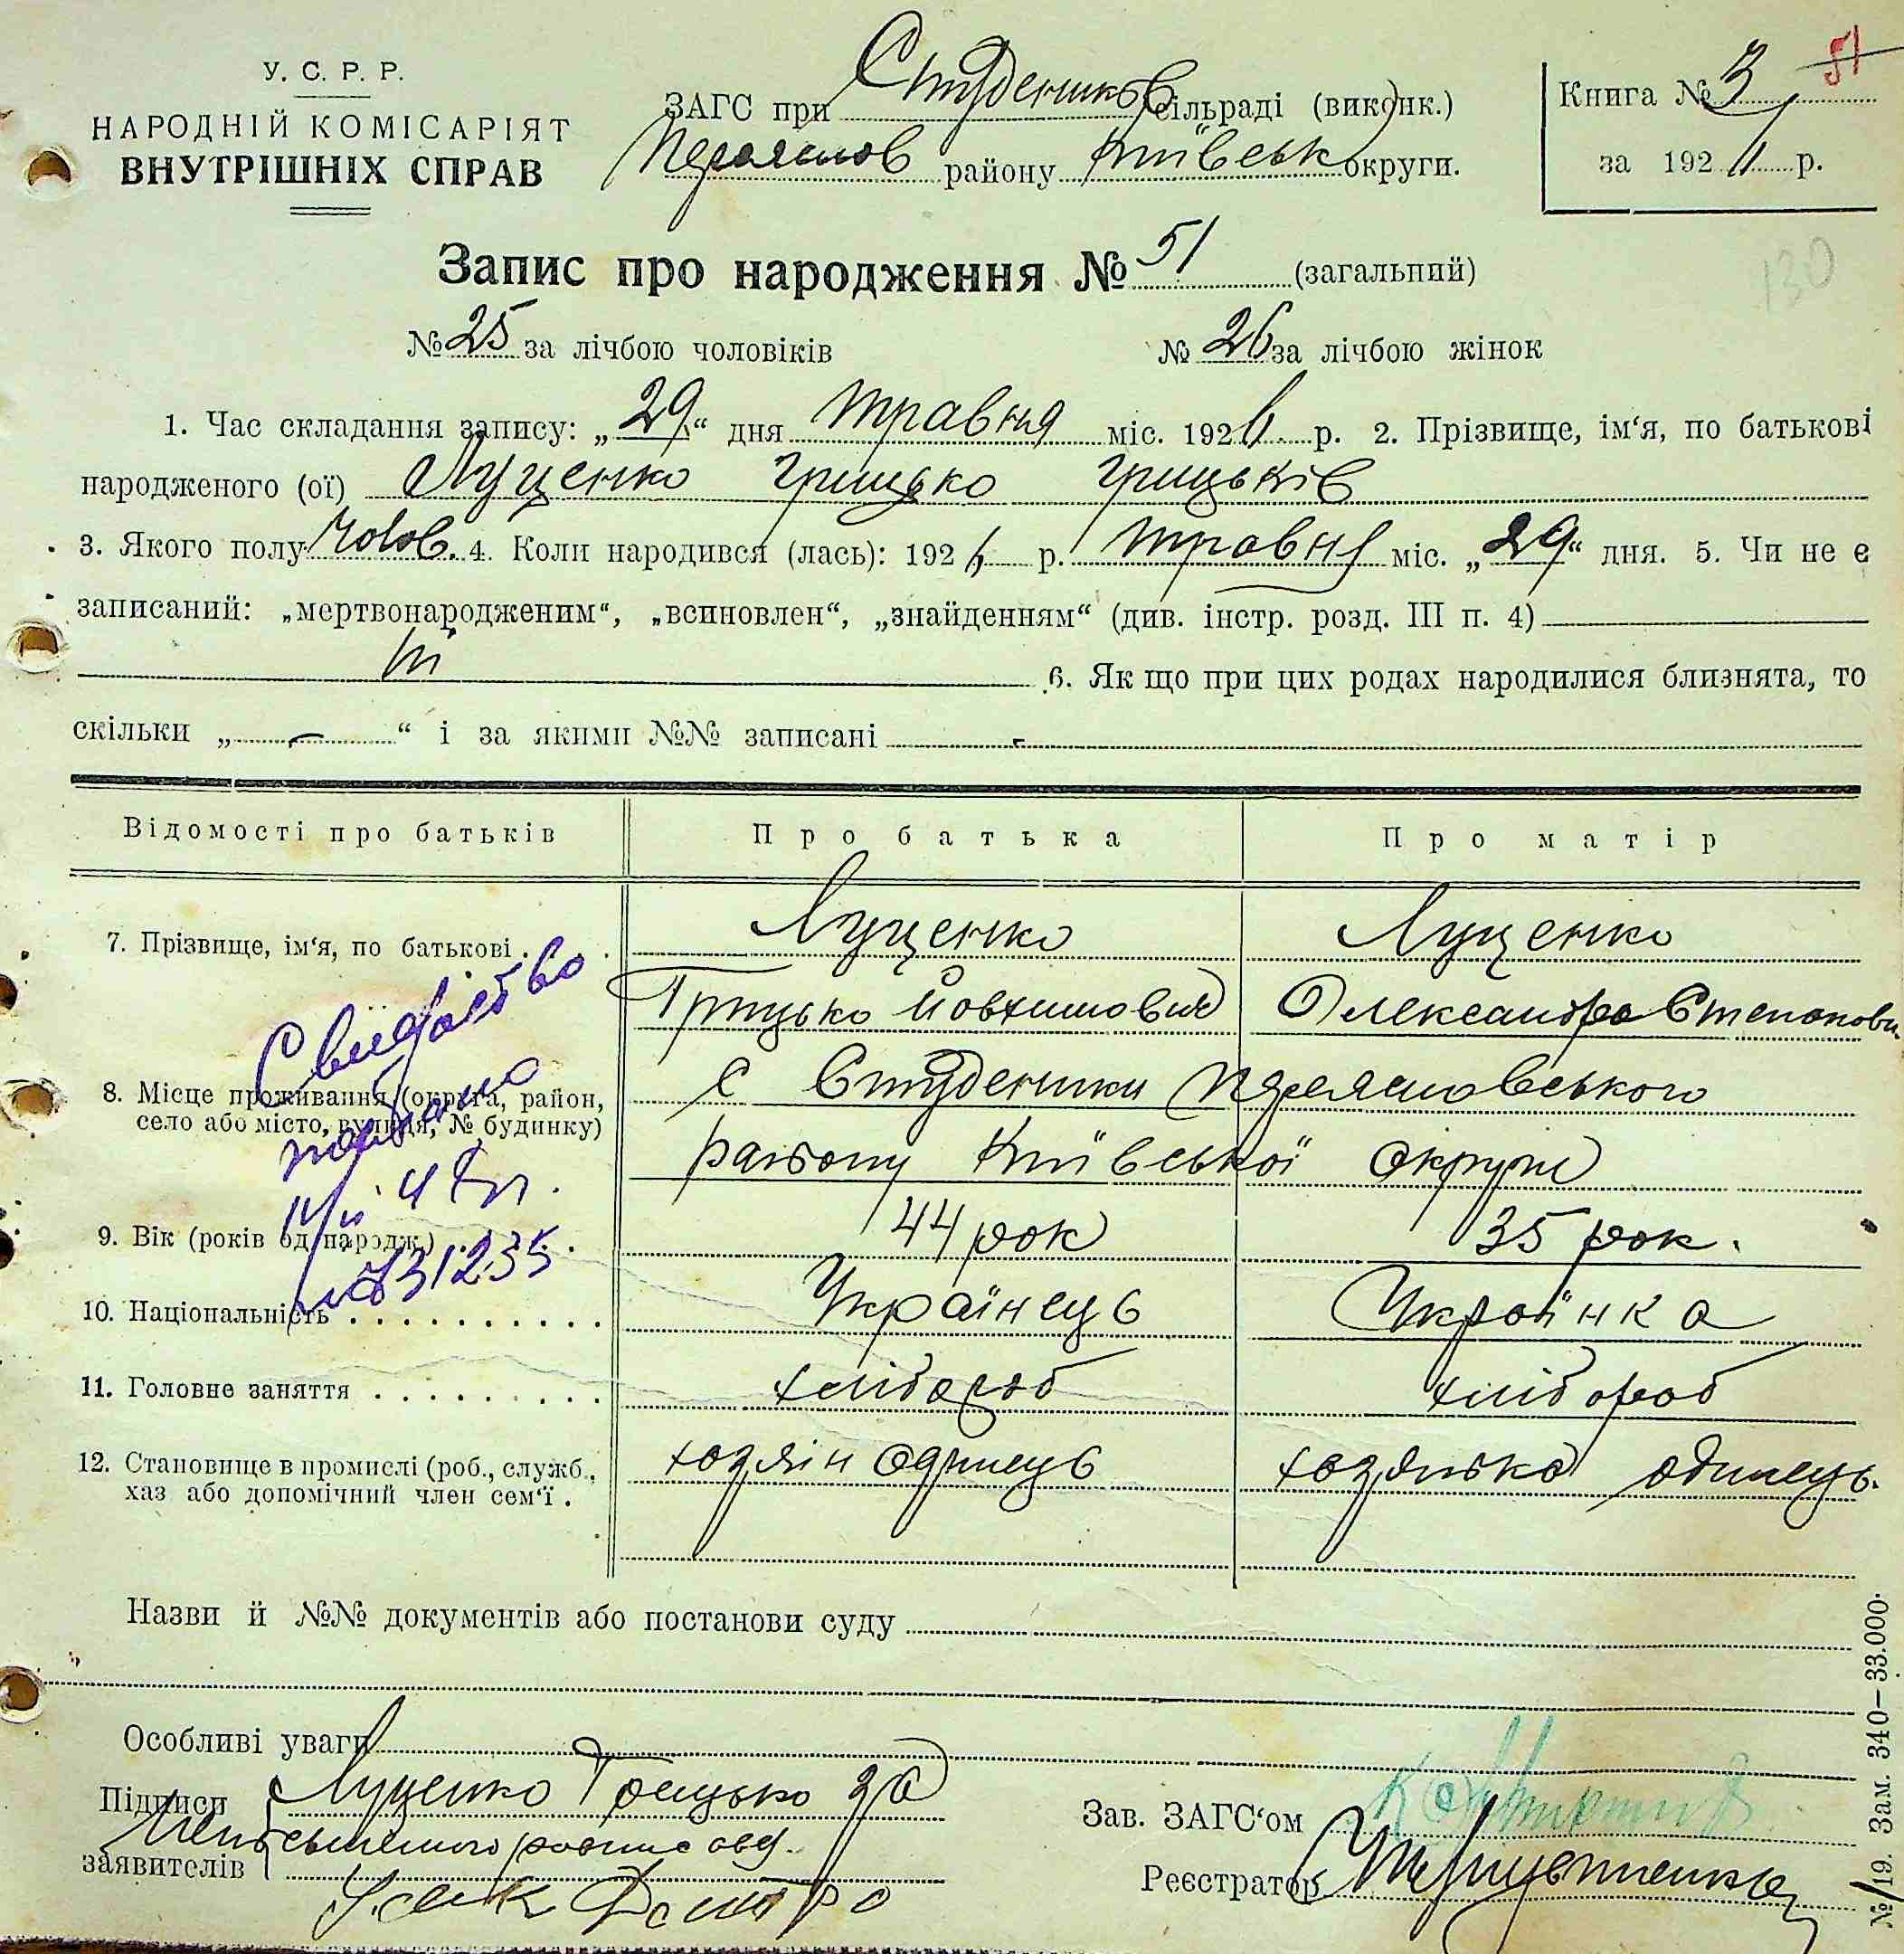 51
У. С. Р. Р.
НАРОДНІЙ КОМІСАРІЯТ
ВНУТРІШНІХ СПРАВ
ЗАГС при Студеников сільраді (виконк.)
Переяслов району Київськ округи.
Книга № 3
за 192 р.
Запис про народження № 51 (загальний)
130
№ 25 за лічбою чоловіків № 26 за лічбою жінок
1. Час складання запису: „29“ дня травня міс. 192 р. 2. Прізвище, ім‘я, по батькові
народженого (ої) Луценко Грицько Грицьків
3. Якого полу Чолов. 4. Коли народився (лась): 192 р. травня міс. „29“ дня. 5. Чи не є
записаний: „мертвонародженим“, „всиновлен“, „знайденням“ (див. інстр. розд. III п. 4)
ні 6. Як що при цих родах народилися близнята, то
скільки „ - “ і за якими №№ записані -
Відомості про батьків Про батька Про матір
7. Прізвище, ім‘я, по батькові . . . Луценко Луценко
Грицько Йовхимович Олександра Степанови
8. Місце проживання (округа, район, с Студеники Переясловського
село або місто, вулиця, № будинку)
району Київської округи
9. Вік (років од народж.) 44 рок 35 рок.
10. Національність . . . . . . . . . . . Українець Українка
11. Головне заняття . . . . . . . . . хлібороб хлібороб
12. Становище в промислі (роб., служб., хозяін одинець хозяйка одинець.
хаз або допомічний член сем‘ї .
Свидоство
31235
Назви й №№ документів або постанови суду
Особливі уваги
Підписи Луценко Грицько за
заявителів
Зав. ЗАГС‘ом
Реєстратор
№ 19. Зам. 340—33.000.